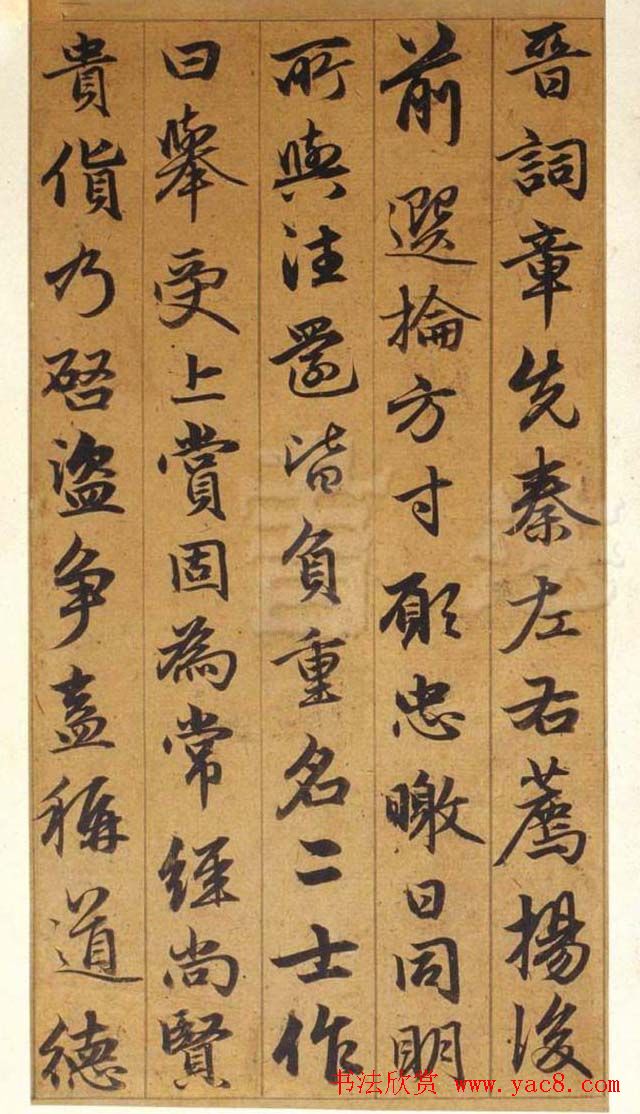 晋詞章先秦左右薦揚後
前選掄方寸願忠曒日同明
所與注選皆負重名二士作
曰舉受上賞固為常經尚賢
貴貨乃啓盜争盍稱道德
书法欣赏 www.yac8.com